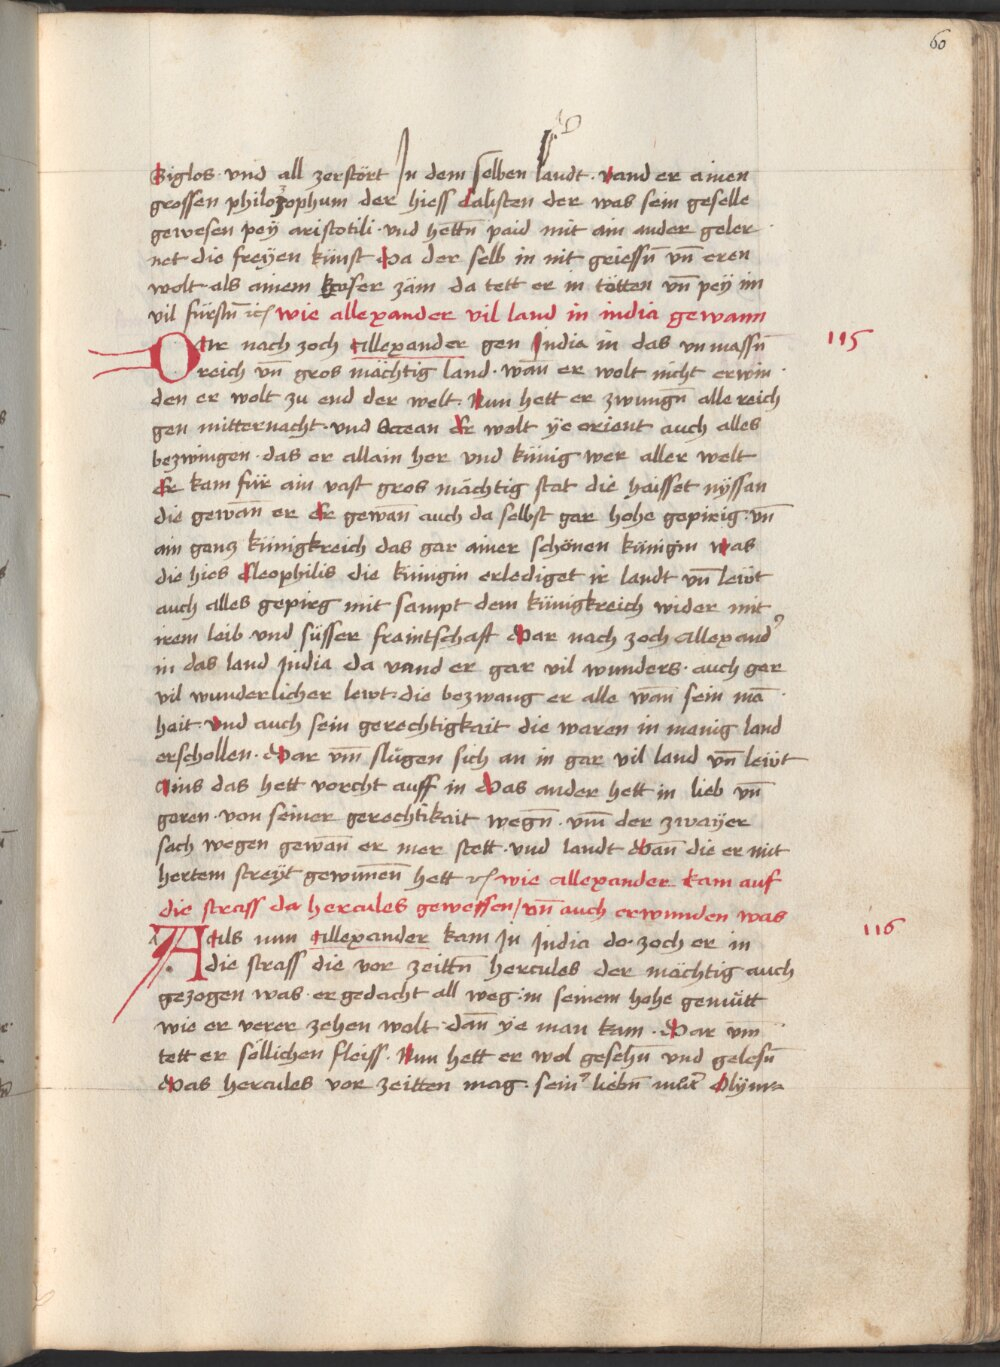 60
Ziglos · vnd all zerstört In dem selben landt · vand er ainen
grossen philozophum der hiess Calisten der was sein geselle
gewesen peÿ aristotili · vnd hettn̄ paid mit ain ander geler ·
net die freÿen künst Da der selb in nit griessn̄ vn̄ eren
wolt · als ainem kaÿser zäm da tett er in tötten vn̄ peÿ im
vil fürstn̄ ꝛc wie allexander vil land in india gewann
DAr nach zoch Allexander gen India in das vn massn̄
reich vn̄ gros mächtig land · wan̄ er wolt nicht erwin ·
den er wolt zu end der welt · Nun hett er zwungn̄ alle reich
gen mitternacht · vnd Occean Er wolt ÿe orient auch alles
bezwingen · das er allain her vnd künig wer aller welt
Er kam für ain vast gros mächtig stat die haisset nÿssan
die gewan̄ er Er gewan̄ auch da selbst gar hohe gepirig · vn̄
ain gencz künigkreich das gar ainer schönen künigin was
die hies Cleophilis die künigin erlediget ir landt vn̄ lewt
auch alles gepirg mit sampt dem künigkreich wider mit
irem leib vnd süsser fraintschaft Dar nach zoch allexand᾽
in das land India da vand er gar vil wunders · auch gar
vil wunderlicher lewt · die bezwang er alle wan̄ sein ma᷑ ·
heit · vnd auch sein gerechtigkait die waren in manig land
erschollen · Dar vm̄ slůgen sich an in gar vil land vn̄ lewt
Ains das hett vorcht auff in Das ander hett in lieb vn̄
geren · von seiner gerechtikait wegn̄ · vm̄ der zwaÿer
sach wegen gewan̄ er mer stett · vnd landt Dan̄ die er mit
hertem streÿt gewunnen̄ hett ꝛc wie allexander kam auf
die strass da hercules gewessen / vn̄ auch erwunden was
AAls nun Allexander kam In India do · zoch er in
die strass die vor zeittn̄ hercules der mächtig auch
gezogen was · er gedacht all weg · in seinem hohe gemütt
wie er verer zehen wolt · dan̄ ÿe man kam · Dar vm̄
tett er söllichen fleiss · Nun hett er wol gesehn̄ vnd gelesn̄
Das hercules vor zeitten mag · sein᾽ liebn̄ můt᾽ Olÿm
115
116